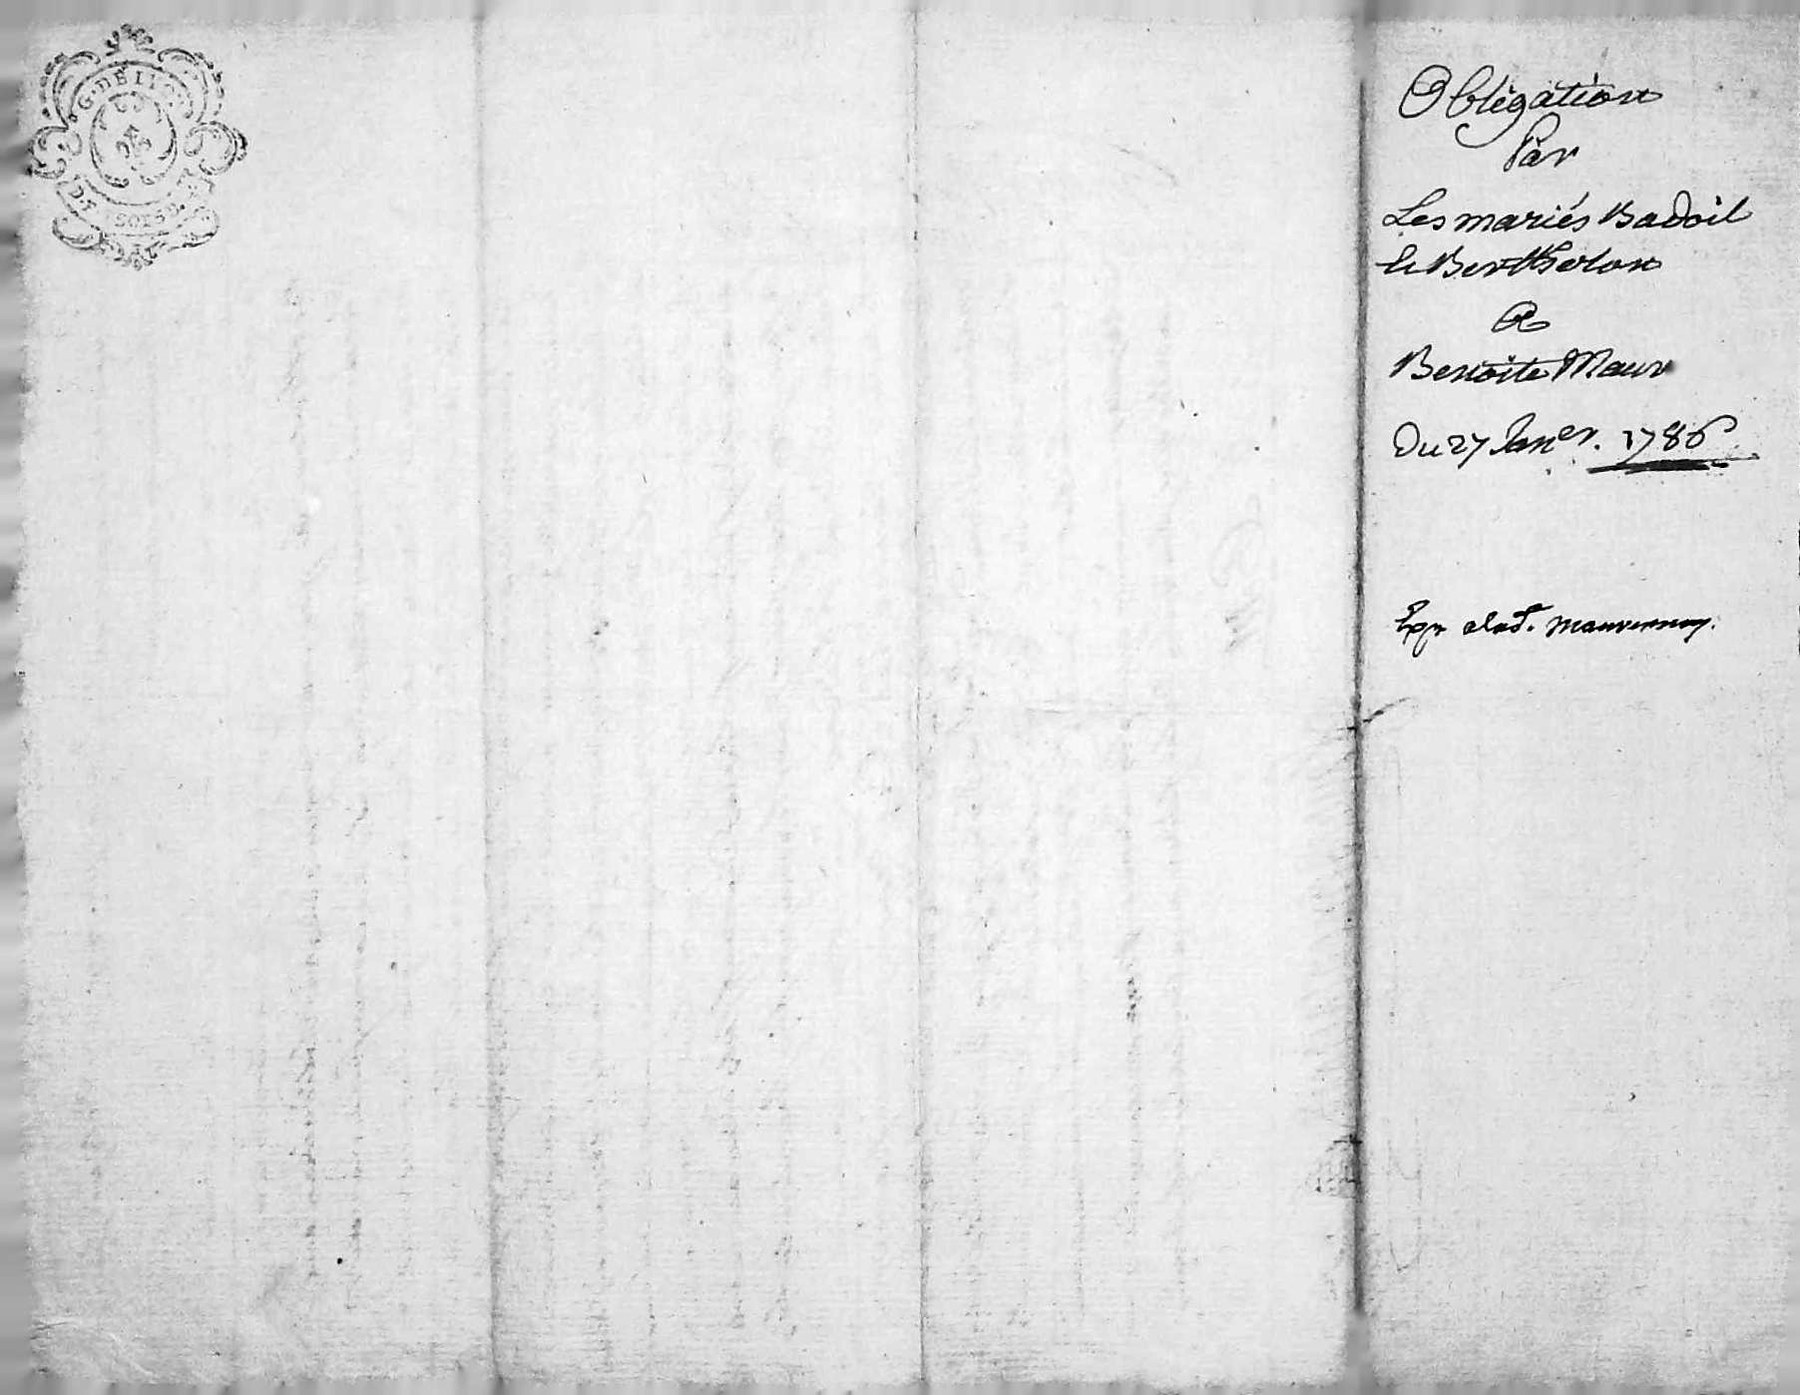 G. DE LY
D. F. SOLS D.
Obligation
Par
Les mariés Badoil
et Berthelon
A
Benoite Maur
Du 27 Jan^er. 1786
Exp^n alad^e.